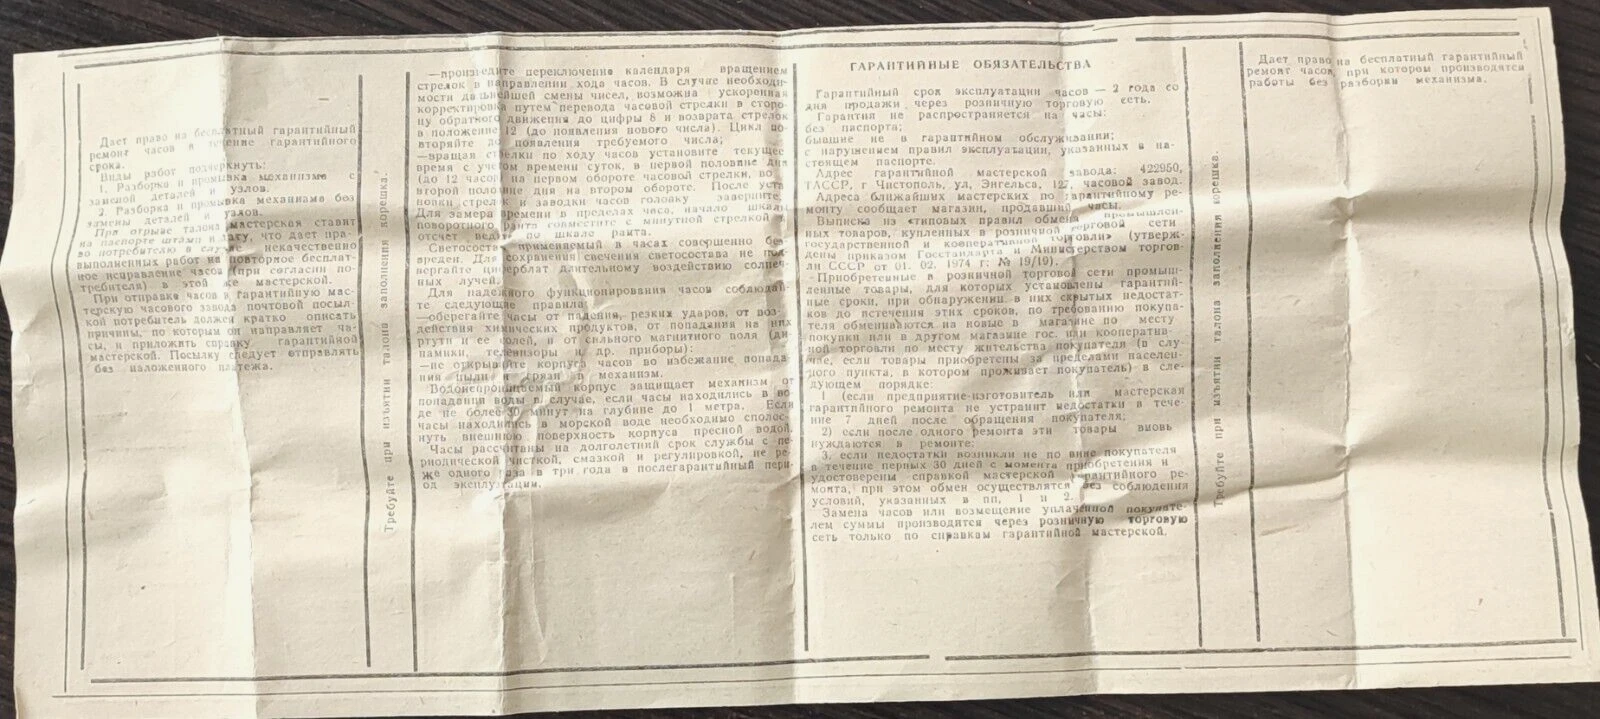 Дает право на бесплатный гарантийный
ремонт часов в течение гарантийного
срока.
Виды работ подчеркнуть:
1. Разборка и промывка механизма с
заменой деталей и узлов.
2. Разборка и промывка механизма без
замены деталей и узлов.
При отрыве талона мастерская ставит
на паспорте штамп и дату, что дает пра-
во потребителю в случае некачественно
выполненных работ на повторное бесплат-
ное исправление часов (при согласии по-
требителя) в этой же мастерской.
При отправке часов в гарантийную мас-
терскую часового завода почтовой посыл-
кой потребитель должен кратко описать
причины, по которым он направляет ча-
сы, и приложить справку гарантийной
мастерской. Посылку следует отправлять
без наложенного платежа.
Требуйте при изъятии талона заполнения корешка.
—произведите переключение календаря вращением
стрелок в направлении хода часов. В случае необходи-
мости дальнейшей смены чисел, возможна ускоренная
корректировка путем перевода часовой стрелки в сторо-
ну обратного движения до цифры 8 и возврата стрелок
в положение 12 (до появления нового числа). Цикл по-
вторяйте до появления требуемого числа;
—вращая стрелки по ходу часов установите текущее
время с учетом времени суток, в первой половине дня
(до 12 часов) на первом обороте часовой стрелки, во
второй половине дня на втором обороте. После уста
новки стрелок и заводки часов головку заверните.
Для замера времени в пределах часа, начало шкалы
поворотного ранта совместите с минутной стрелкой и
отсчет ведите по шкале ранта.
Светосостав применяемый в часах совершенно без
вреден. Для сохранения свечения светосостава не под-
вергайте циферблат длительному воздействию солнеч-
ных лучей.
Для надежного функционирования часов соблюдай-
те следующие правила:
—оберегайте часы от падения, резких ударов, от воз-
действия химических продуктов, от попадания на них
ртути и ее солей, и от сильного магнитного поля (ди
намики, телевизоры и др. приборы);
—не открывайте корпуса часов во избежание попада-
ния пыли и грязи в механизм.
Водонепроницаемый корпус защищает механизм от
попадания воды в случае, если часы находились в во-
де не более 30 минут на глубине до 1 метра. Если
часы находились в морской воде необходимо сполос-
нуть внешнюю поверхность корпуса пресной водой.
Часы рассчитаны на долголетний срок службы с пе-
риодической чисткой, смазкой и регулировкой, не ре-
же одного раза в три года в послегарантийный пери-
од эксплуатации.
ГАРАНТИЙНЫЕ ОБЯЗАТЕЛЬСТВА
Гарантийный срок эксплуатации часов — 2 года со
дня продажи через розничную торговую сеть.
Гарантия не распространяется на часы:
без паспорта;
бывшие не в гарантийном обслуживании;
с нарушением правил эксплуатации, указанных в на-
стоящем паспорте.
Адрес гарантийной мастерской завода: 422950,
ТАССР, г Чистополь, ул, Энгельса, 127, часовой завод.
Адреса ближайших мастерских по гарантийному ре-
монту сообщает магазин, продавший часы.
Выписка из «типовых правил обмена промышлен-
ных товаров, купленных в розничной торговой сети
государственной и кооперативной торговли» (утверж-
дены приказом Госстандарта и Министерством торгов-
ли СССР от 01. 02. 1974 г: № 19/19).
Приобретенные в розничной торговой сети промыш-
ленные товары, для которых установлены гарантий-
ные сроки, при обнаружении в них скрытых недостат-
ков до истечения этих сроков, по требованию покупа-
теля обмениваются на новые в магазине по месту
покупки или в другом магазине гос. или кооператив-
ной торговли по месту жительства покупателя (в слу-
чае, если товары приобретены за пределами населен-
ного пункта, в котором проживает покупатель) в сле-
дующем порядке:
1 (если предприятие-изготовитель или мастерская
гарантийного ремонта не устранит недостатки в тече-
ние 7 дней после обращения покупателя;
2) если после одного ремонта эти товары вновь
нуждаются в ремонте:
3. если недостатки возникли не по вине покупателя
в течение первых 30 дней с момента приобретения и
удостоверены справкой мастерской гарантийного ре-
монта, при этом обмен осуществляется без соблюдения
условий, указанных в пп, 1 и 2.
Замена часов или возмещение уплаченной покупате-
лем суммы производится через розничную торговую
сеть только по справкам гарантийной мастерской.
Требуйте при изъятии талона заполнения корешка.
Дает право на бесплатный гарантийный
ремонт часов, при котором производятся
работы без разборки механизма.